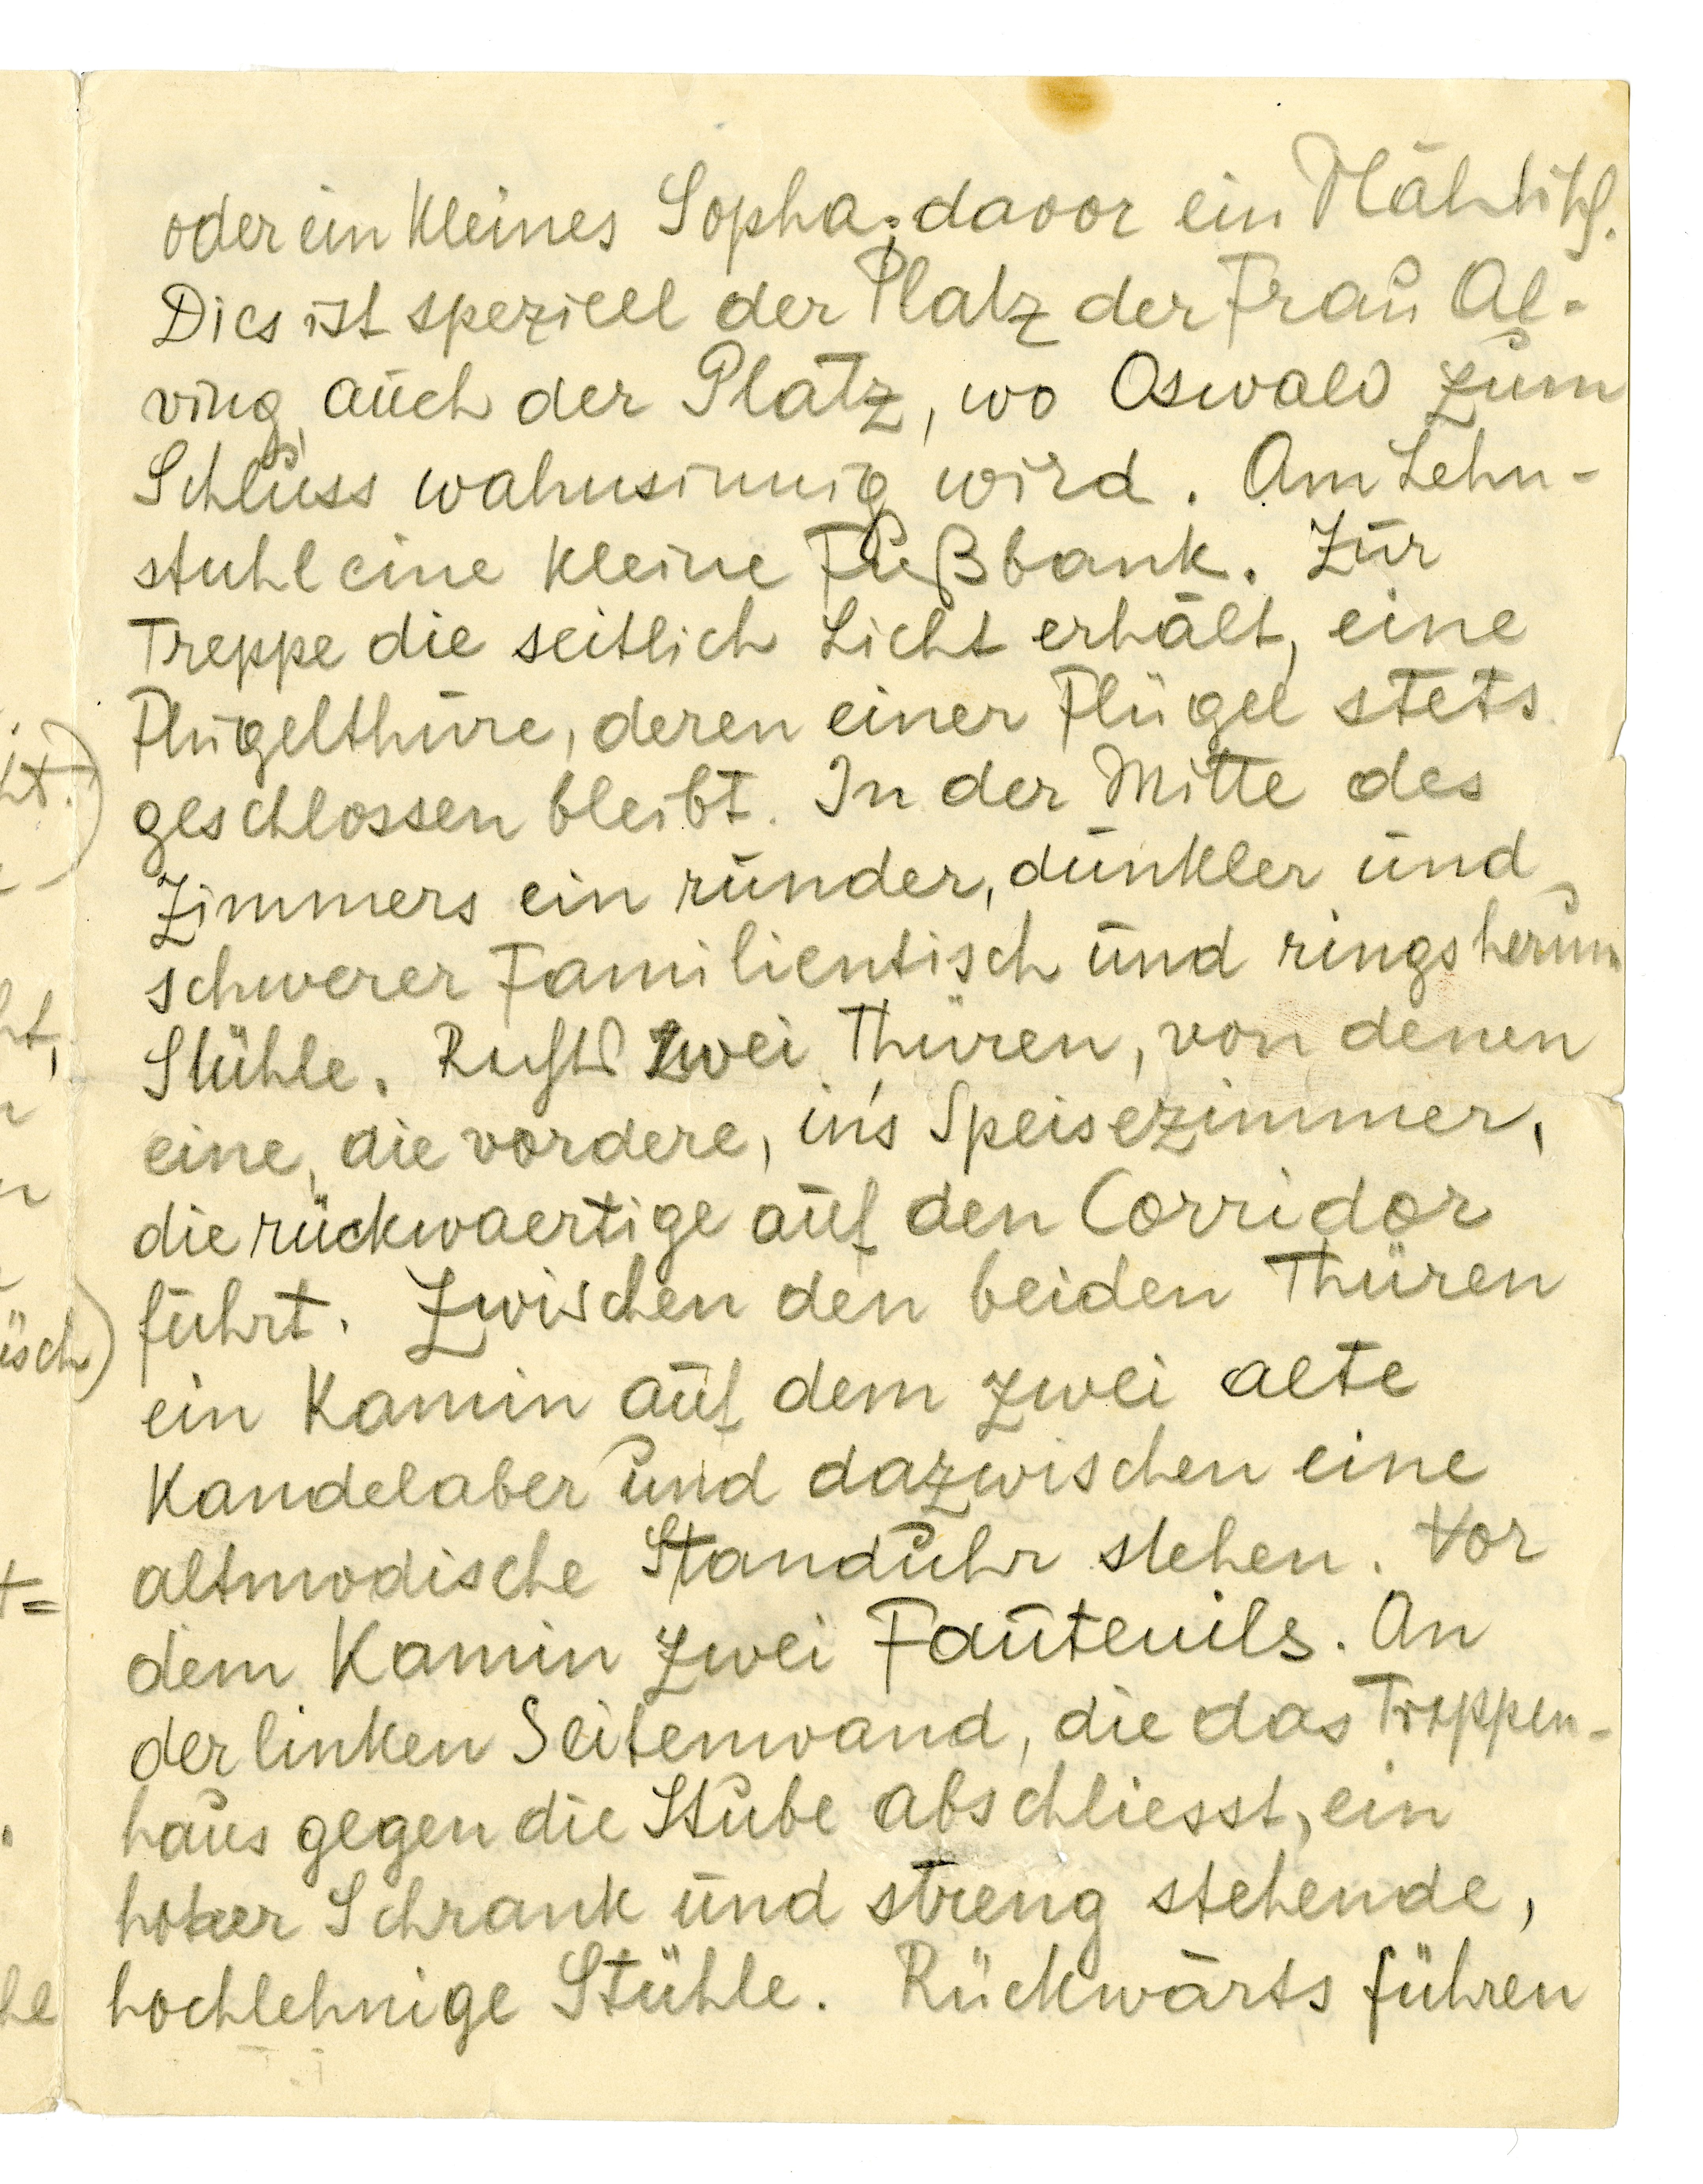 oder ein kleines Sopha; davor ein Nähtisch.
Dies ist speziell der Platz der Frau Al-
ving, auch der Platz, wo Oswald zum
Schluss wahnsinnig wird. Am Lehn-
stuhl eine kleine Fußbank. Zur
Treppe die seitlich Licht erhält, eine
Flügelthüre, deren einer Flügel stets
geschlossen bleibt. In der Mitte des
Zimmers ein runder, dunkler und
schwerer Familientisch und ringsherum
Stühle. Rechts zwei Thüren, von denen
eine, die vordere, in's Speisezimmer,
die rückwaertige auf den Corridor
führt. Zwischen den beiden Thüren
ein Kamin auf dem zwei alte
Kandelaber und dazwischen eine
altmodische Standuhr stehen. Vor
dem Kamin zwei Fauteuils. An
der linken Seitenwand, die das Treppen-
haus gegen die Stube abschliesst, ein
hoher Schrank und streng stehende,
hochlehnige Stühle. Rückwärts führen